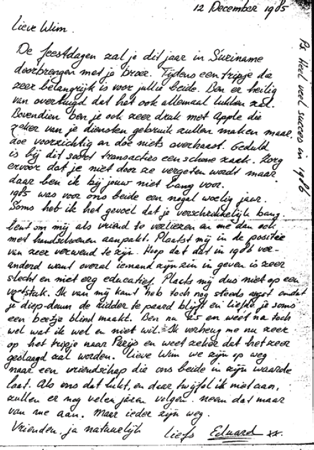 12 December 1985
Lieve Wim,
De feestdagen zal je dit jaar in Suriname
doorbrengen met je broer. Tijdens een tripje da
zeer belangrijk is voor jullie beide. Ben er heilig
van overtuigd dat het ook allemaal lukken zal.
Bovendien ben je ook zeer druk met Apple die
zeker van je diensten gebruik zullen maken maar
doe voorzichtig en doe niets overhaast. Geduld
is bij dit soort transacties een schone zaak. Zorg
ervoor dat je niet door ze vergeten wordt maar
daar ben ik bij jouw niet bang voor.
1985 was voor ons beide een nogal woelig jaar.
Soms heb ik het gevoel dat je verschrikkelijk bang
bent om mij als vriend te verliezen en me dan ook
met handschoenen aanpakt. Plaatst mij in de positie
van zeer verwend te zijn. Hoop dat dit in 1986 ver-
anderd want overal iemand zijn zin in geven is zeer
slecht en niet erg educatief. Plaats mij dus niet op een
voetstuk. Ik van mij kant heb toch nog steeds
je diep de ridder te paard blijft en liefde je soms
een beetje blind maakt. Ben nu 25 en weet na toch
wel wat ik wel en niet wil. Ik verheug me nu zeer
op het tripje naar Parijs en weet zeker dat het zeer
geslaagd zal worden. Lieve Wim we zijn op weg
naar een vriendschap die ons beide in zijn waarde
laat. Als ons dat lukt, en daar twijfel ik niet aan,
zullen er nog velen jaren volgen. neem dat maar
van me aan. Maar ieder zijn weg.
Vrienden, ja natuurlijk
Liefs Eduard xx.
Ps Heel veel succes in 1986